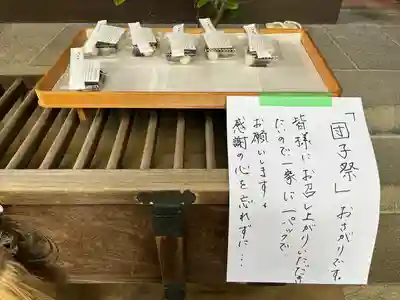 「団子祭」おさがりです。
皆様にお召し上がりいただき
たいので一家に一パックで
お願いします。
感謝の心を忘れずに…